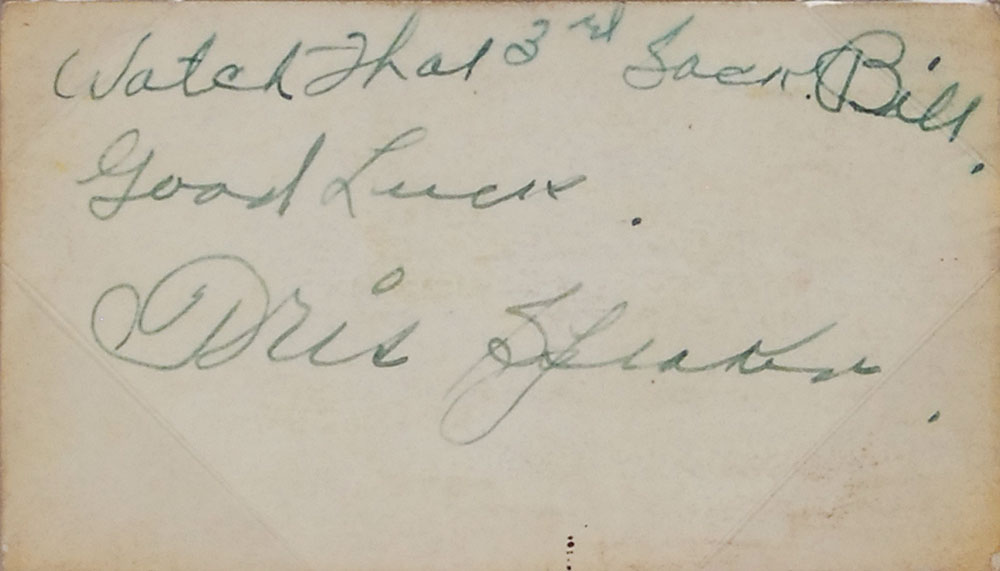 Watch That 3rd Sack Bill.
Good Luck.
Tris Speaker.